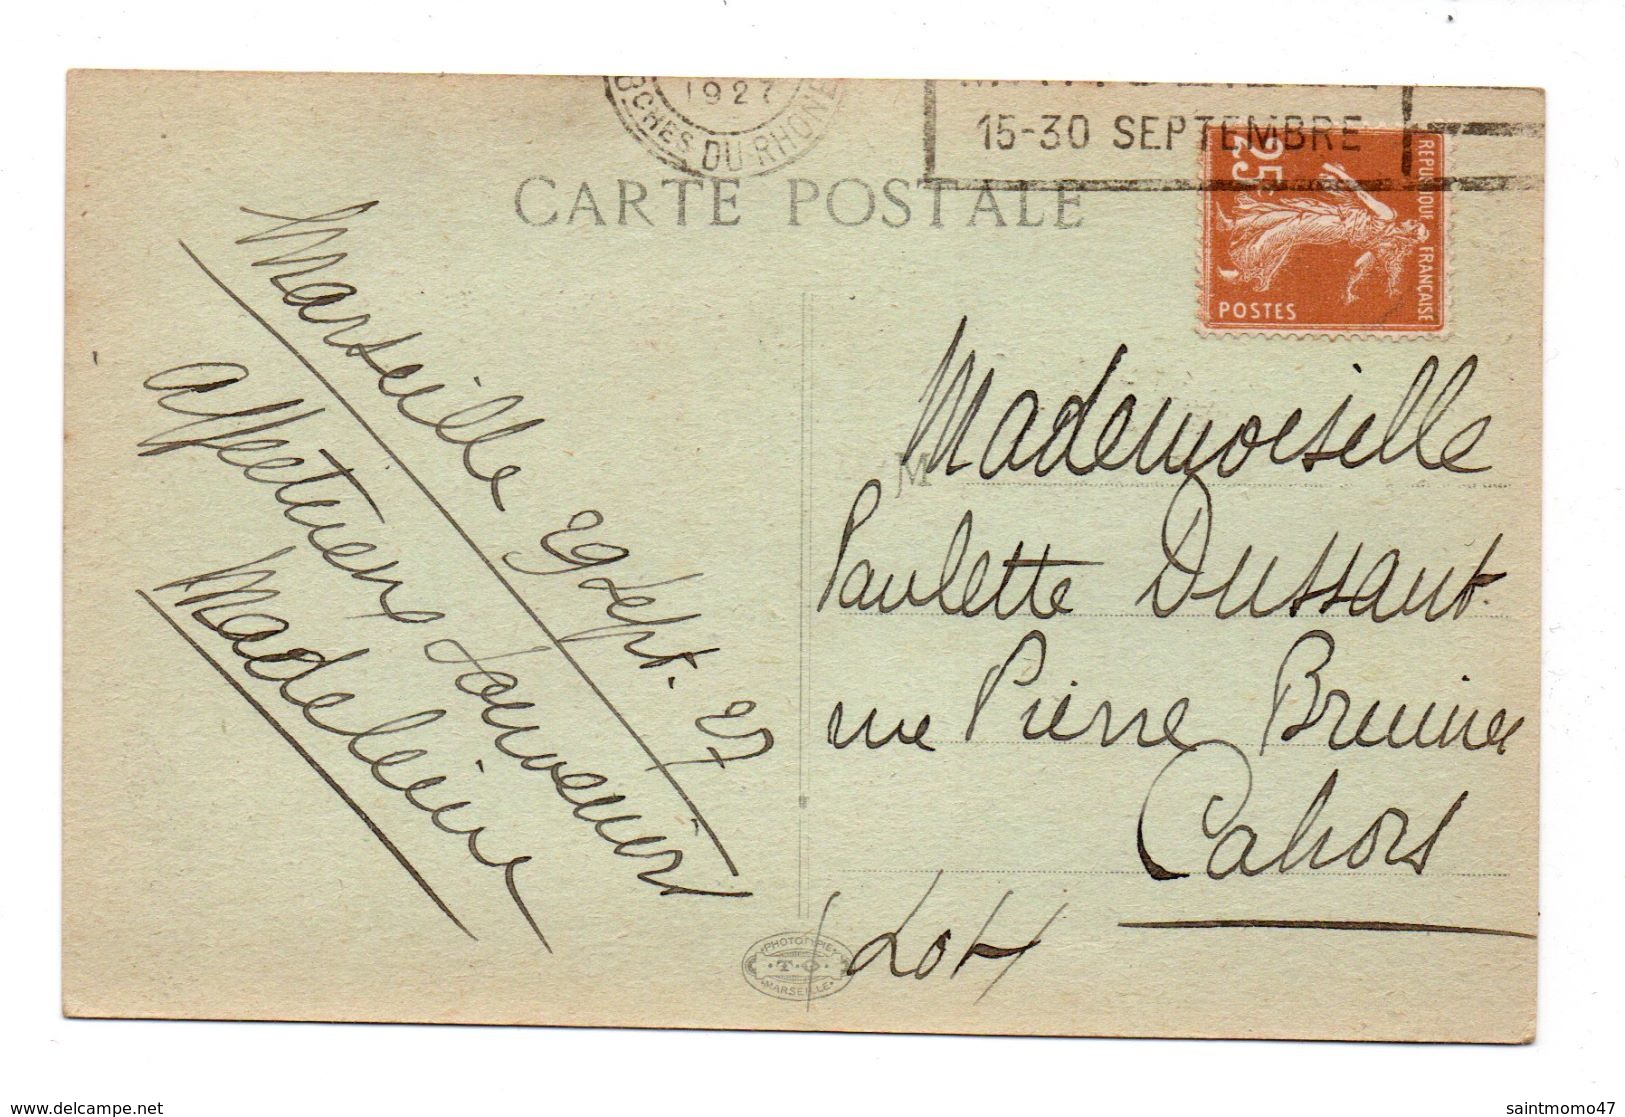 1927
BCHES DU RHONE
15-30 SEPTEMBRE
CARTE POSTALE
25
REPUBLIQUE FRANÇAISE
POSTES
Marseille 29 Sept. 27
affectueux souvenirs
Madeleine
M
Mademoiselle
Paulette Dussaut
rue Pierre
Cahors
(Lot)
PHOTOTYPIE
MARSEILLE
www.delcampe.net
saintmomo47